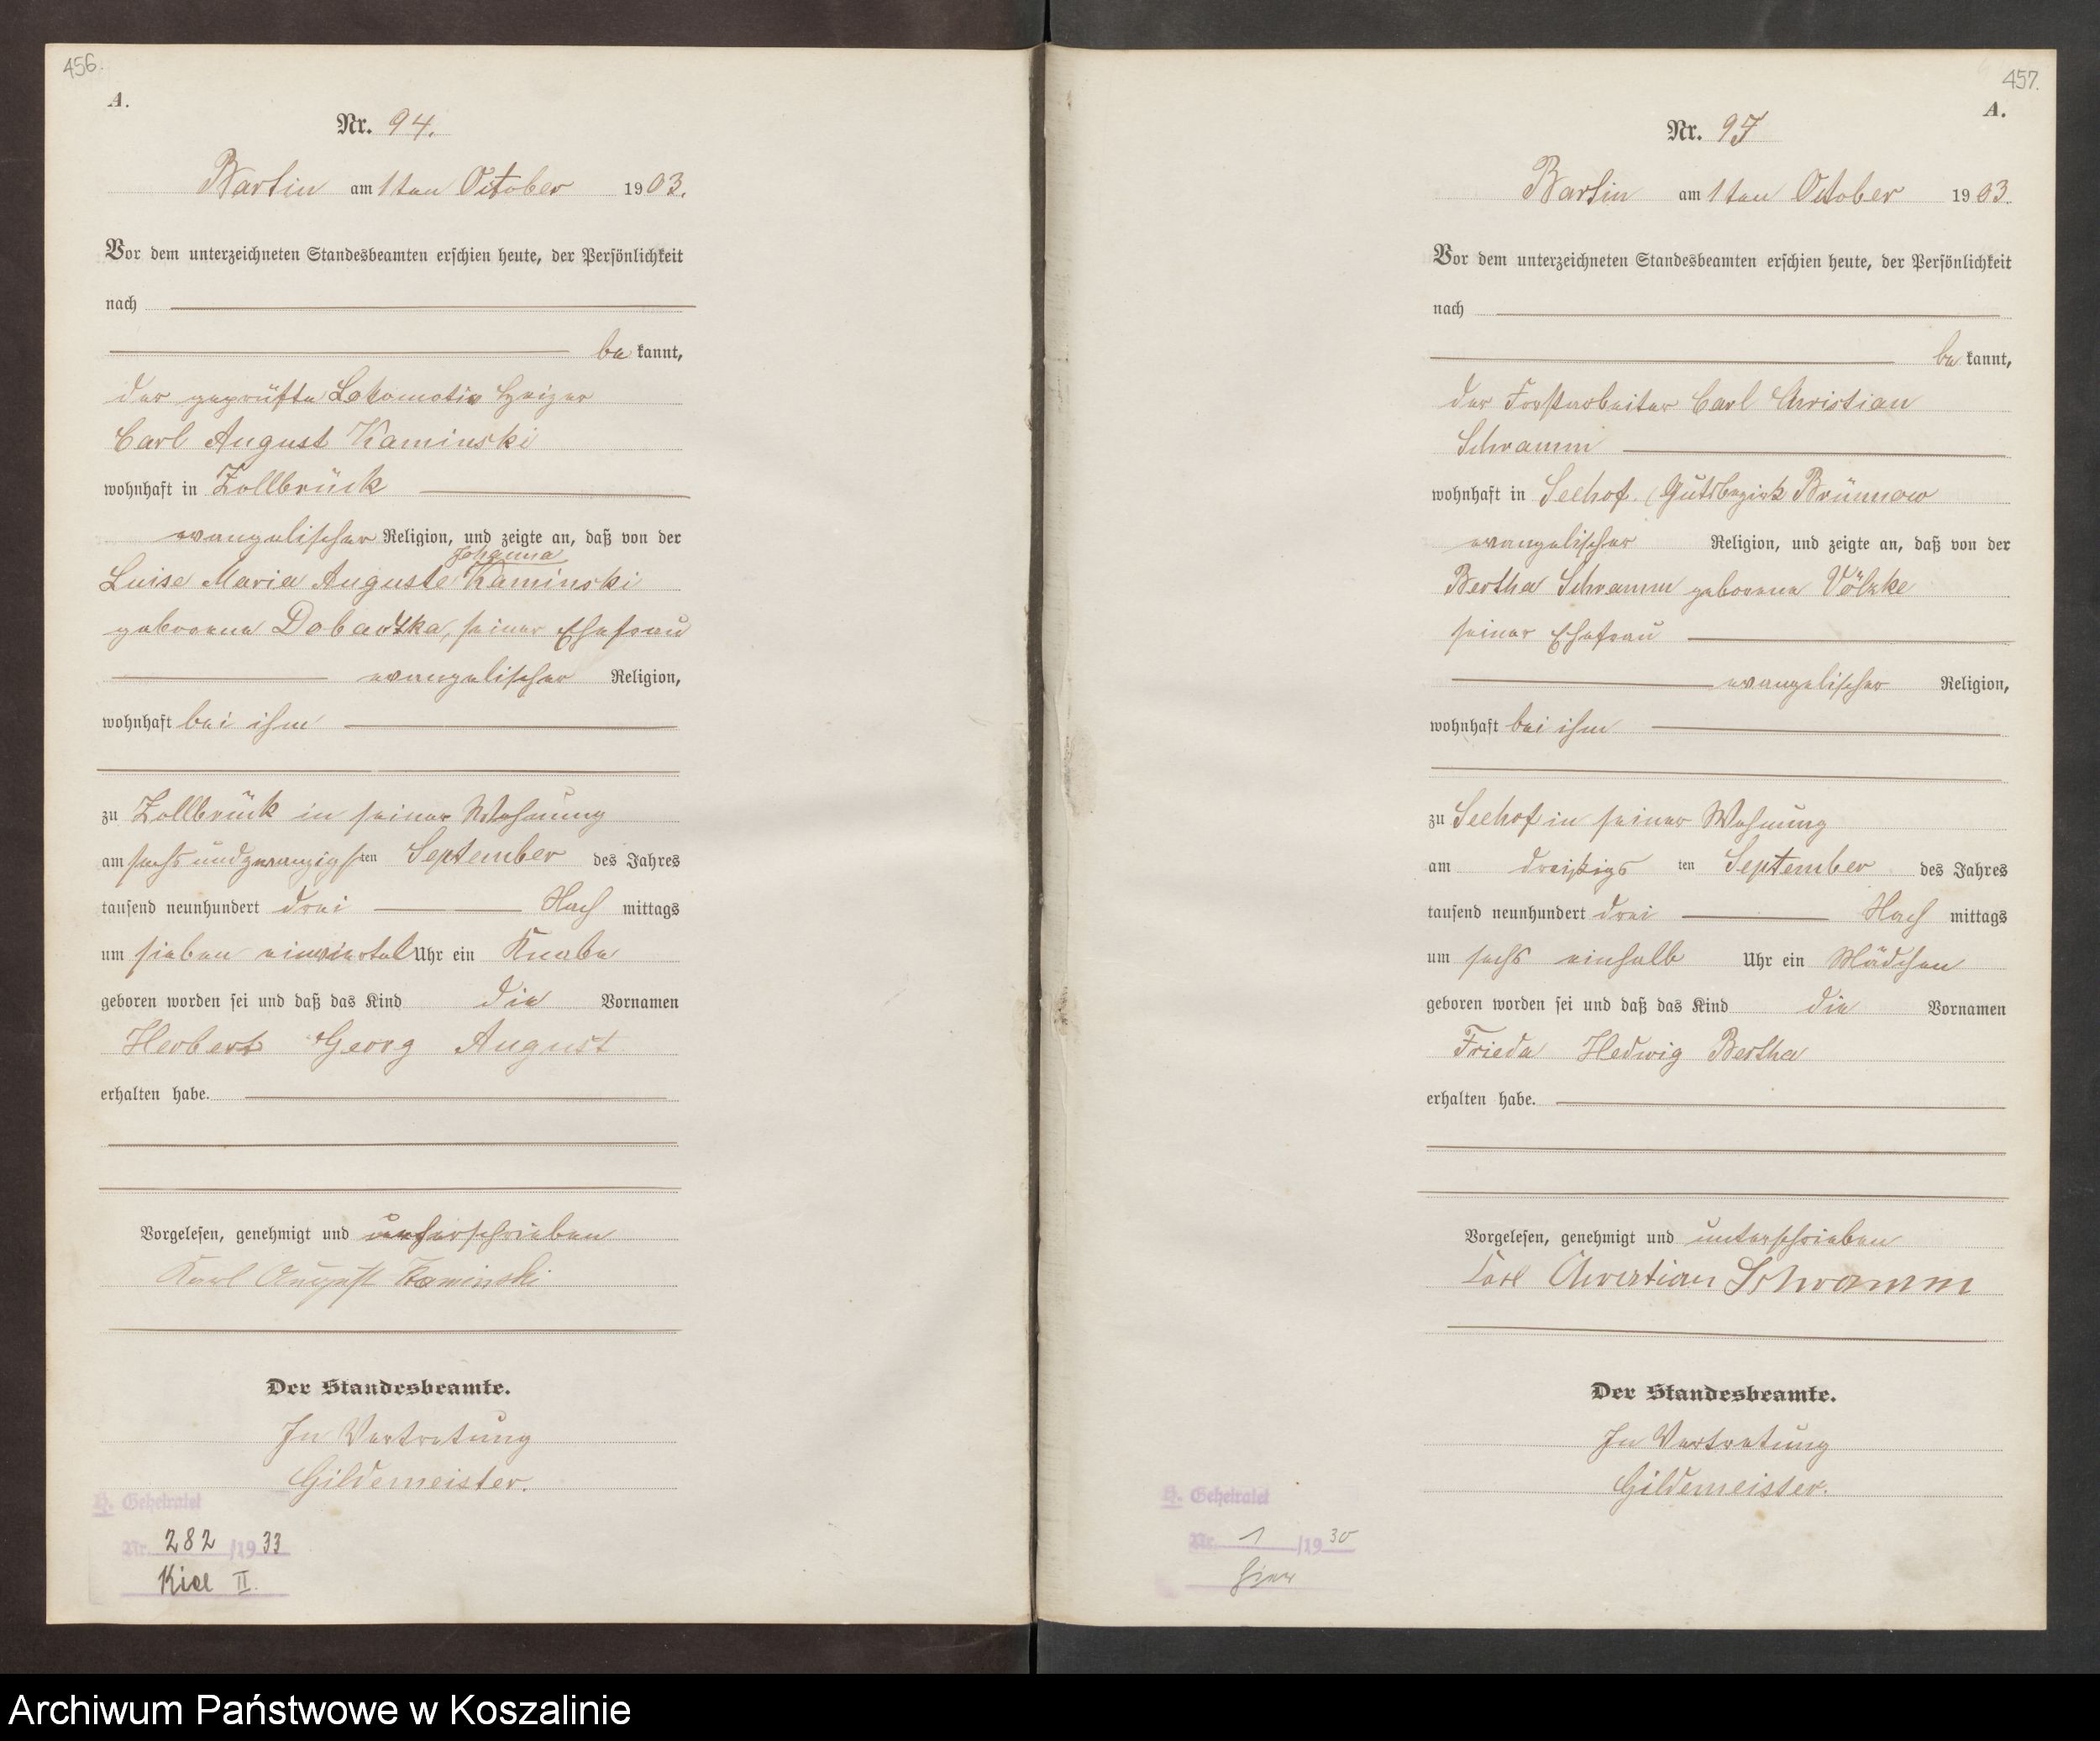 456.
A.
Nr. 94.
Bartin am 1ten October 1903.
Vor dem unterzeichneten Standesbeamten erschien heute, der Persönlichkeit
nach
be kannt,
der geprüfte Lokomotiv Heizer
Carl August Kaminski
wohnhaft in Zollbrück
evangelischer Religion, und zeigte an, daß von der
Johanna
Luise Maria Auguste Kaminski
geborene, seiner Ehefrau
evangelischer Religion,
wohnhaft bei ihm
zu Zollbrück in seiner Wohnung
am sechs und zwanzigsten September des Jahres
tausend neunhundert drei Nach mittags
um sieben einviertel Uhr ein Knabe
geboren worden sei und daß das Kind die Vornamen
Herbert Georg August
erhalten habe.
Vorgelesen, genehmigt und unterschrieben
Karl August Kaminski
Der Standesbeamte.
In Vertretung
Gildemeister.
H. Geheiratet
Nr. 282 /1933
Kiel II.
457.
A.
Nr. 97
Bartin am 1ten October 1903.
Vor dem unterzeichneten Standesbeamten erschien heute, der Persönlichkeit
nach
be kannt,
der Forstarbeiter Carl Christian
Schramm
wohnhaft in Seehof, Gutsbezirk Brünnow
evangelischer Religion, und zeigte an, daß von der
Bertha Schramm geborene Völzke
seiner Ehefrau
evangelischer Religion,
wohnhaft bei ihm
zu Seehof in seiner Wohnung
am dreißigs ten September des Jahres
tausend neunhundert drei Nach mittags
um sechs einhalb Uhr ein Mädchen
geboren worden sei und daß das Kind die Vornamen
Frieda Hedwig Bertha
erhalten habe.
Vorgelesen, genehmigt und unterschrieben
Carl Christian Schramm
Der Standesbeamte.
In Vertretung
Gildemeister.
H. Geheiratet
Nr. 1 /1930
hier
Archiwum Państwowe w Koszalinie